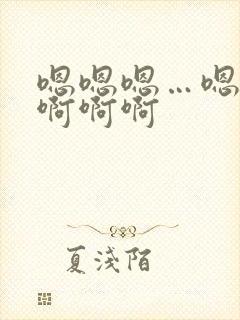 嗯嗯嗯…嗯
啊啊啊
夏淺陌